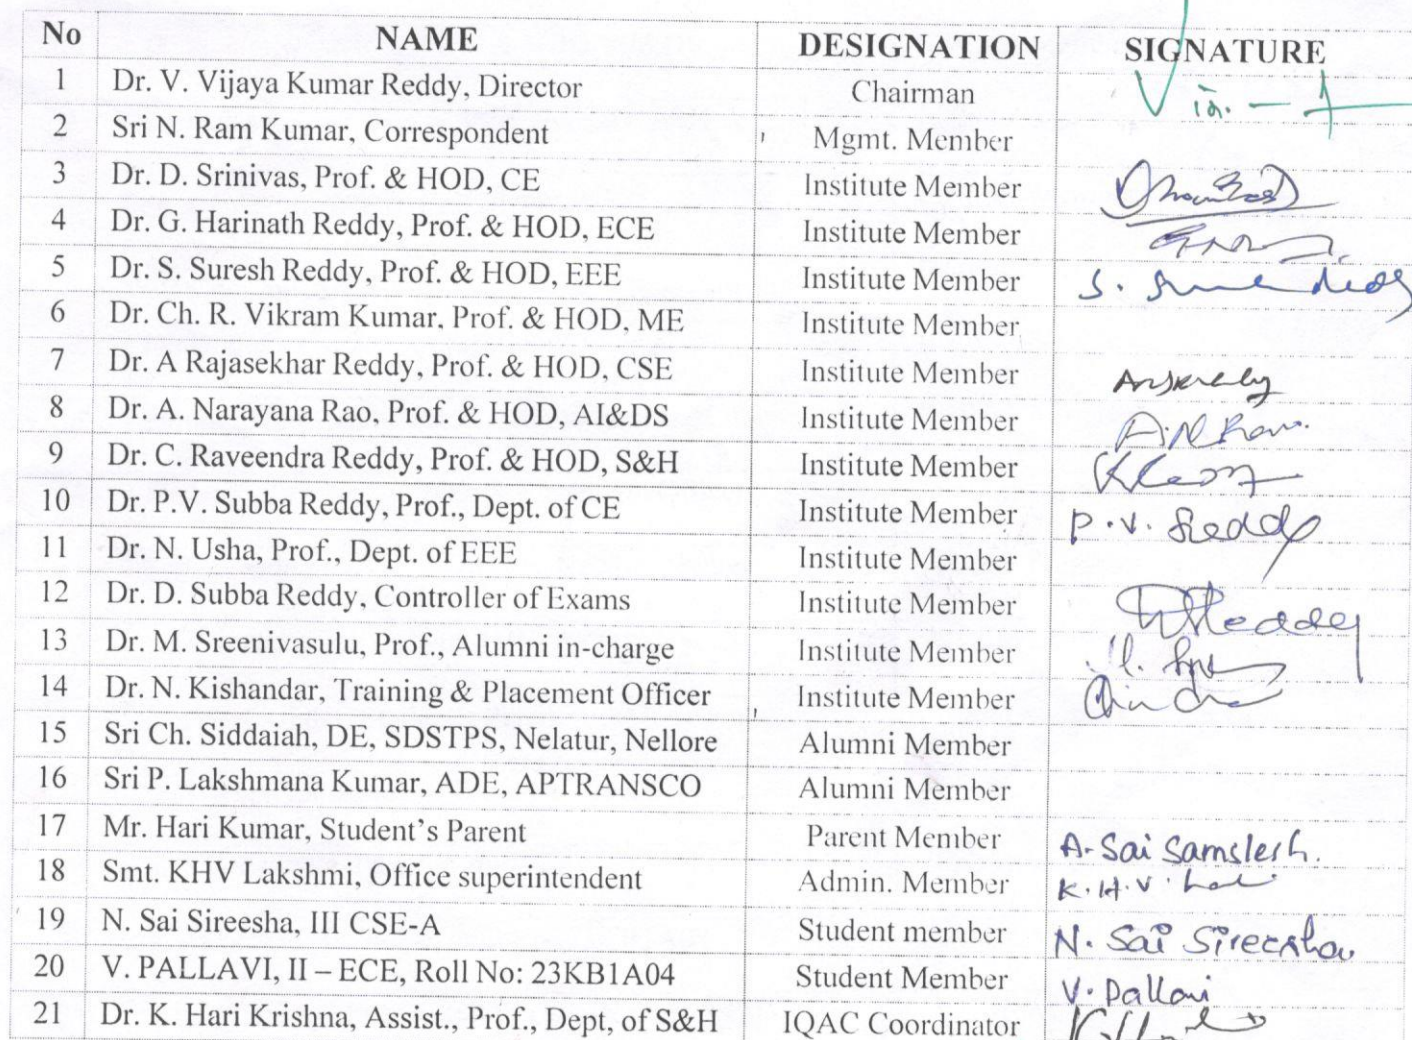 No NAME DESIGNATION SIGNATURE
1 Dr. V. Vijaya Kumar Reddy, Director Chairman
2 Sri N. Ram Kumar, Correspondent Mgmt. Member
3 Dr. D. Srinivas, Prof. & HOD, CE Institute Member
4 Dr. G. Harinath Reddy, Prof. & HOD, ECE Institute Member
5 Dr. S. Suresh Reddy, Prof. & HOD, EEE Institute Member
6 Dr. Ch. R. Vikram Kumar, Prof. & HOD, ME Institute Member
7 Dr. A Rajasekhar Reddy, Prof. & HOD, CSE Institute Member
8 Dr. A. Narayana Rao, Prof. & HOD, AI&DS Institute Member
9 Dr. C. Raveendra Reddy, Prof. & HOD, S&H Institute Member
10 Dr. P.V. Subba Reddy, Prof., Dept. of CE Institute Member P.V. Reddy
11 Dr. N. Usha, Prof., Dept. of EEE Institute Member
12 Dr. D. Subba Reddy, Controller of Exams Institute Member
13 Dr. M. Sreenivasulu, Prof., Alumni in-charge Institute Member
14 Dr. N. Kishandar, Training & Placement Officer Institute Member
15 Sri Ch. Siddaiah, DE, SDSTPS, Nelatur, Nellore Alumni Member
16 Sri P. Lakshmana Kumar, ADE, APTRANSCO Alumni Member
17 Mr. Hari Kumar, Student's Parent Parent Member A. Sai
18 Smt. KHV Lakshmi, Office superintendent Admin. Member K.H.V.
19 N. Sai Sireesha, III CSE-A Student member N. Sai Sireesha
20 V. PALLAVI, II – ECE, Roll No: 23KB1A04 Student Member V. Pallavi
21 Dr. K. Hari Krishna, Assist., Prof., Dept, of S&H IQAC Coordinator